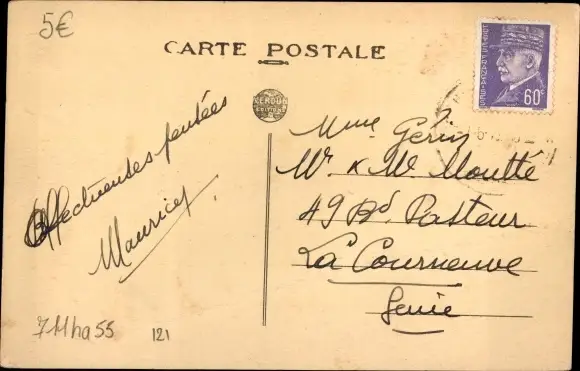 5€
CARTE POSTALE
60c
VERDUN
Affectueuses pensées
Maurice
Mme Gérin
Mr & Me Moutté
49 Bd Pasteur
La Courneuve
Seine
711ha55 121